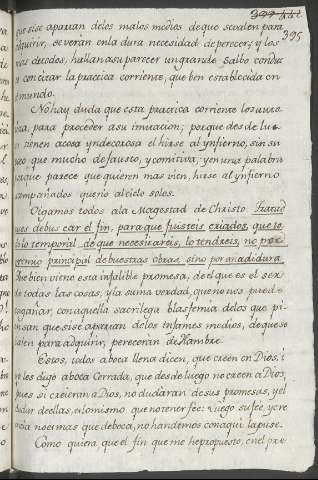 395
que se apartan delos malos medios de que se valen para
adquirir, se verán en la dura necesidad de perecer; y los
hallan a su parecer un grande salbo conduc
en la practica corriente, que ben establecida en
mundo.
No hay duda que esta practica corriente los
para proceder a su imitacion; porque desde lue
tienen acosa yndecorosa el hirse al ynfierno, sin su
que mucho de fausto, y comitiva; y en una palabra
parece que quieren mas bien, hirse al ynfierno
compañados que no al cielo solos.
Oigamos todos ala Magestad de Christo Tratad
de buscar el fin, para que fuisteis criados, que to
lo temporal, de que necesitareis, lo tendreis, no por
premio principal de buestras obras, sino por anadidura.
bien viene esta infalible promesa, de el que es el ser
de todas las cosas, y la suma verdad, que no nos puede
engañar, con aquella sacrilega blasfemia delos que pi
ensan que si se apartan delos infames medios, de que se
balen para adquirir, pereceran de Hambre.
Estos, todos aboca llena dicen, que creen en Dios, i
yo les digo aboca cerrada, que desde luego no creen a Dios,
pues si creieran a Dios, no dudaran de sus promesas, y el
dudar deellas, es lo mismo que no tener fee: Luego su fee, y cre
encia no es mas que de boca, no
Como quiera que el fin que me he propuesto, en el pre